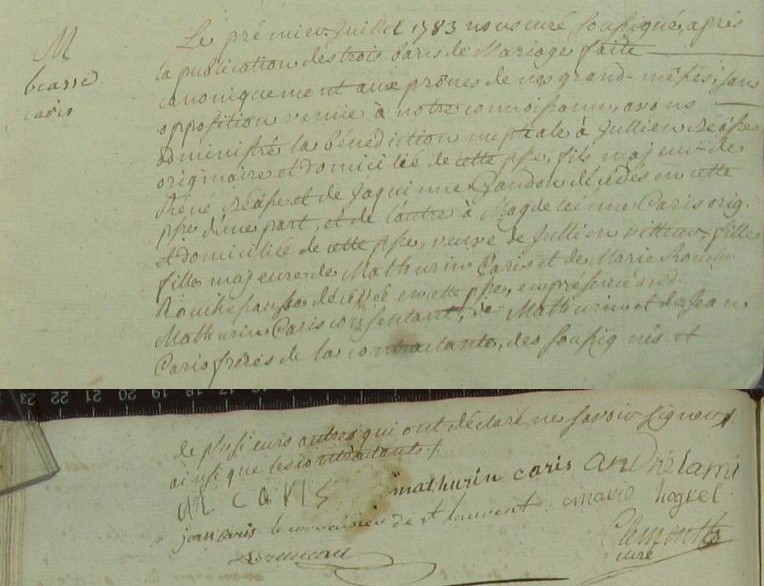 M
caris
Le prémier Juillet 1783 nous curé soussigné, après
la publication des trois bans de Mariage faite
canoniquement aux prônes de nos grand-méses, sans
opposition venüe à notre connoissance, avons
administré la bénédiction nuptiale à Jullien
originaire et domicilié de cette psse, fils majeur de
Réné et de Jaquinne Gandon décédés en cette
psse d'une part, et de l'autre à Magdeleinne Caris orig.
et domiciliée de cette psse, veuve de Jullien fille
fille majeure de Mathurin Caris et de Marie
décédée en cette psse, en présence
Mathurin Caris consentant, de Mathurin et de Jean
Caris frères de la contractante, des soussignés et
de plusieurs autres qui ont déclaré ne savoir signer
ainsi que les contractants
M CARIS mathurin caris André lami
jean caris de st lauvent marie
curé
23 22 21 20 19 18 17 16